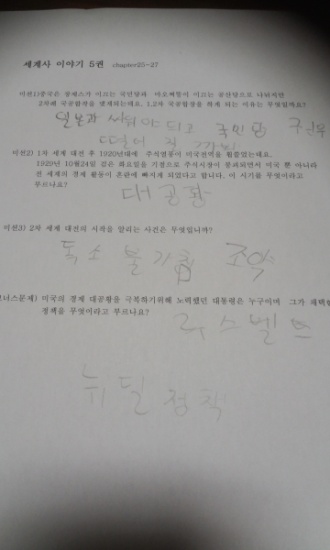 세계사 이야기 5권 chapter25-27
미션1)중국은 장제스가 이끄는 국민당과 마오쩌둥이 이끄는 공산당으로 나뉘지만
2차례 국공합작을 맺게되는데요. 1,2차 국공합작을 하게 되는 이유는 무엇일까요?
일본과 싸워야 되고 국민당
미션2) 1차 세계 대전 후 1920년대에 주식열풍이 미국전역을 휩쓸었는데요.
1929년 10월24일 검은 화요일을 기점으로 주식시장이 붕괴되면서 미국 뿐 아니라
전 세계의 경제 활동이 혼란에 빠지게 되었다고 합니다. 이 시기를 무엇이라고
부르나요?
대공황
미션3) 2차 세계 대전의 시작을 알리는 사건은 무엇입니까?
독소 불가침 조약
보너스문제) 미국의 경제 대공황을 극복하기위해 노력했던 대통령은 누구이며 그가 채택한
정책을 무엇이라고 부르나요?
루스벨트
뉴딜 정책